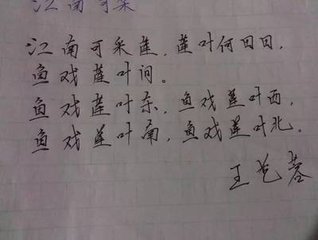 江南可采
江南可采莲,莲叶何田田,
鱼戏莲叶间。
鱼戏莲叶东,鱼戏莲叶西,
鱼戏莲叶南,鱼戏莲叶北。
王